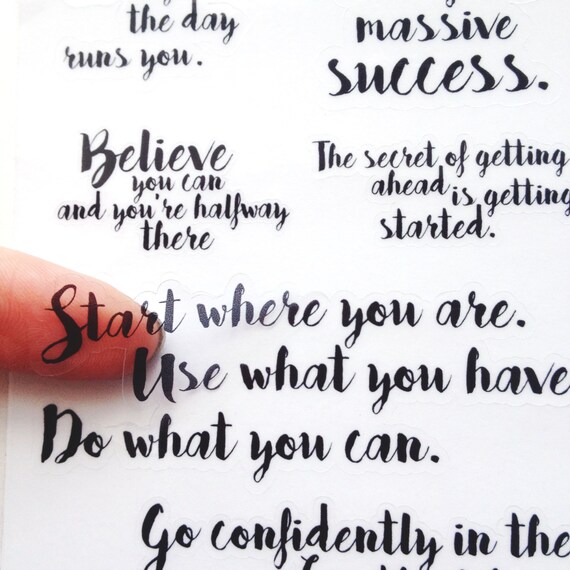 the day
runs you.
massive
success.
Believe
you can
and you're halfway
there
The secret of getting
ahead is getting
started.
Start where you are.
Use what you have
Do what you can.
Go confidently in the